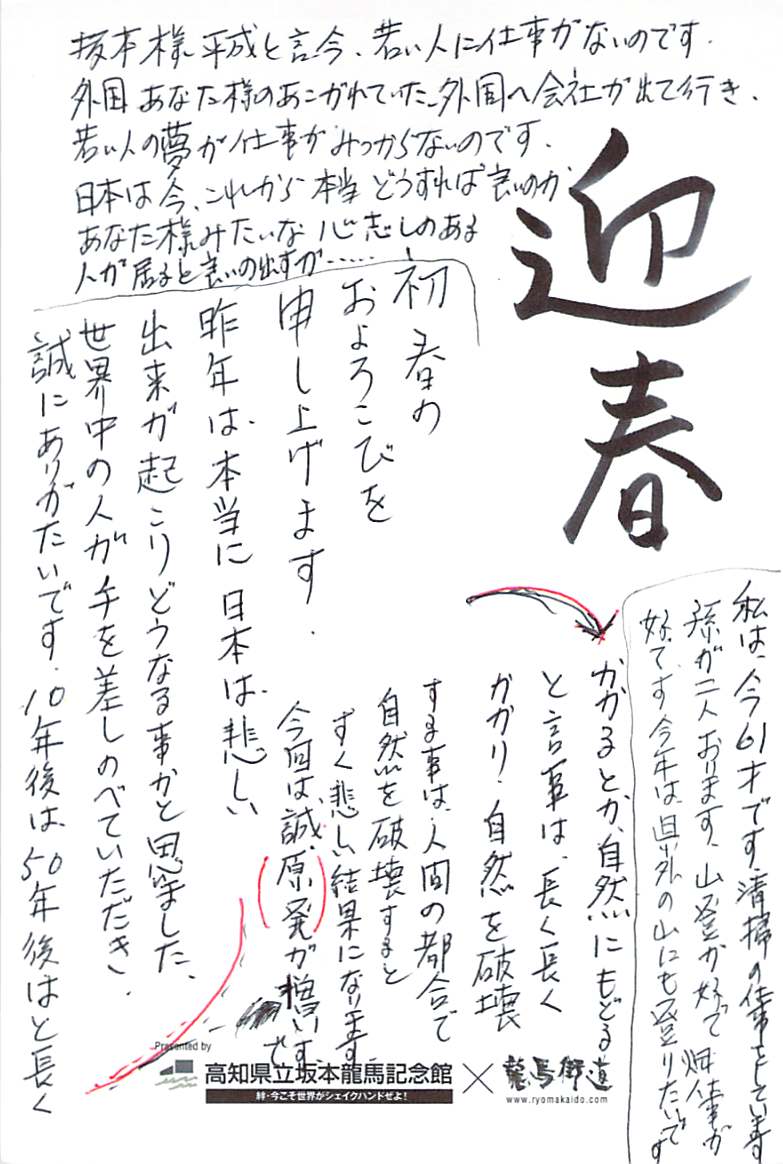 坂本様 平成と言今、若い人に仕事がないのです.
外国 あなた様のあこがれていた、外国へ会社が出て行き、
若い人の夢が仕事がみつからないのです.
日本は今、これから本当どうすれば良いのか
あなた様みたいな心志しのある
人が居ると良いの出すが……
迎春
初春の
およろこびを
申し上げます.
昨年は、本当に日本は、悲しい
出来が起こりどうなる事かと思ました、
世界中の人が手を差しのべていただき、
誠にありがたいです.10年後は、50年後はと長く
かかるとか、自然にもどる
と言事は、長く長く
かかり、自然を破壊
する事は、人間の都合で
自然を破壊すると
すぐ悲しい結果になります
今回は、誠、(原発が増いです
私は、今61才です.清掃の仕事をしています
孫が二人おります、山登が好で畑仕事が
好てす 今年は、県外の山にも登りたいです
Presented by
高知県立坂本龍馬記念館 × 龍馬街道
絆・今こそ世界がシェイクハンドぜよ!
www.ryomakaido.com